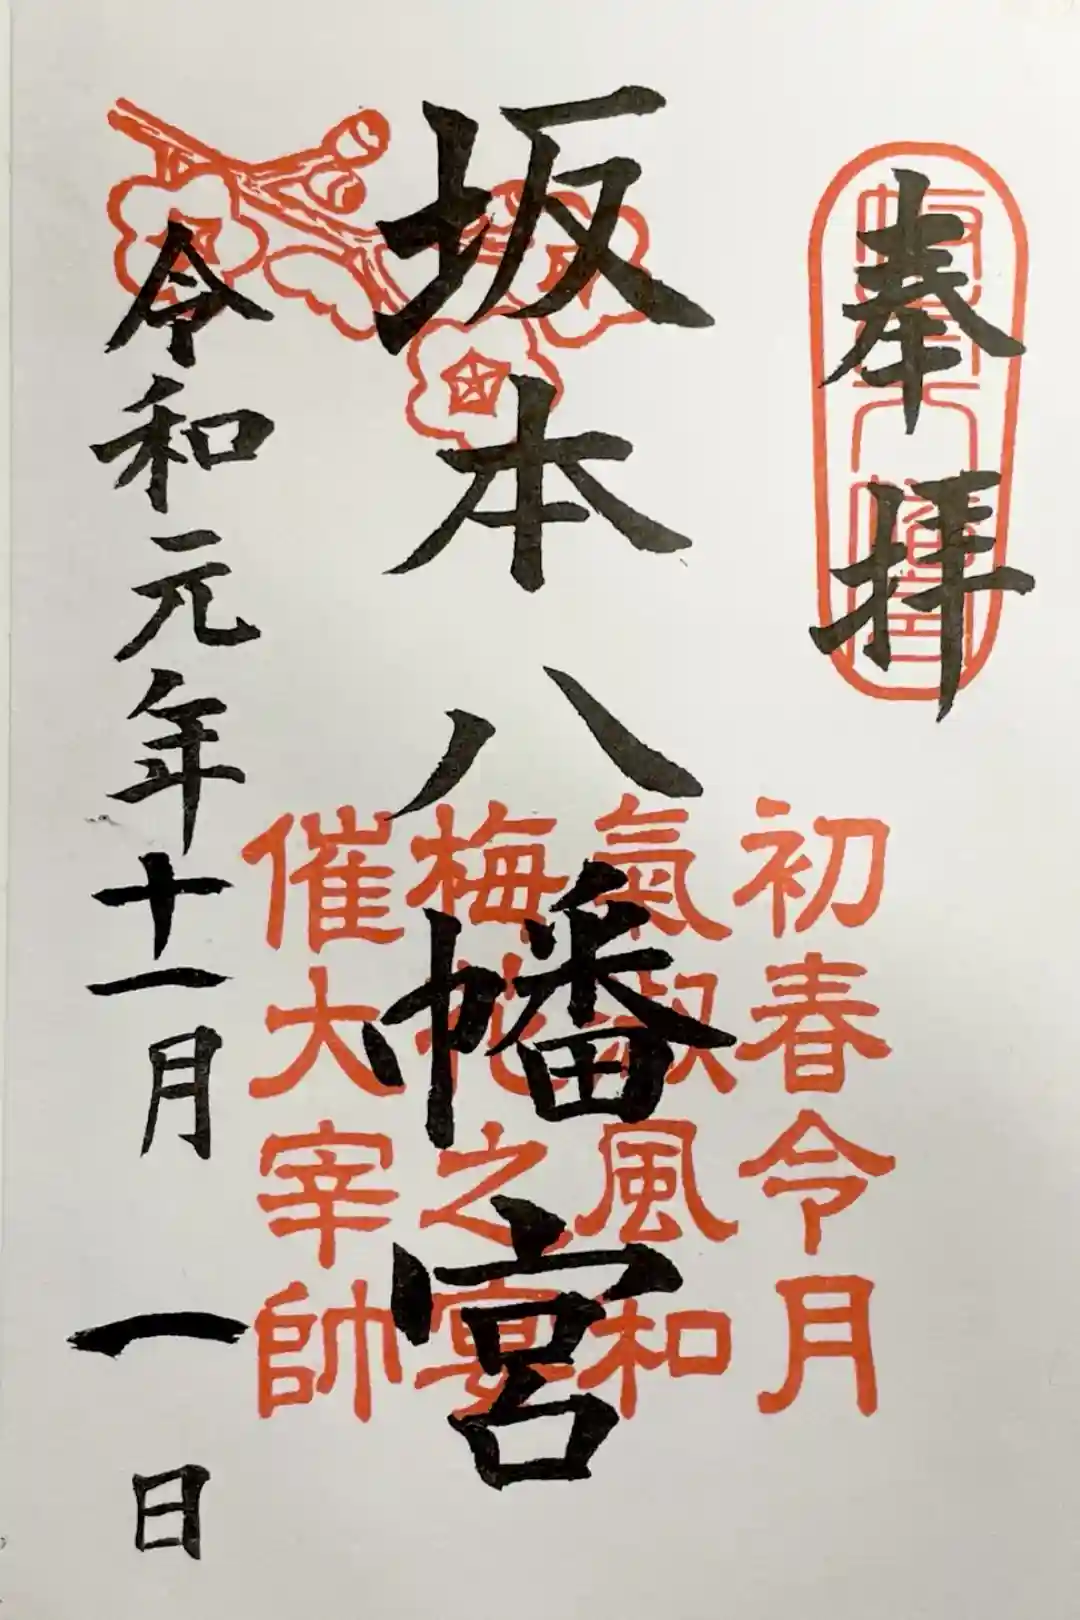 奉拝
坂本八幡宮
令和元年十一月一日
初春令月
氣淑風和
梅花之宴
催大宰帥